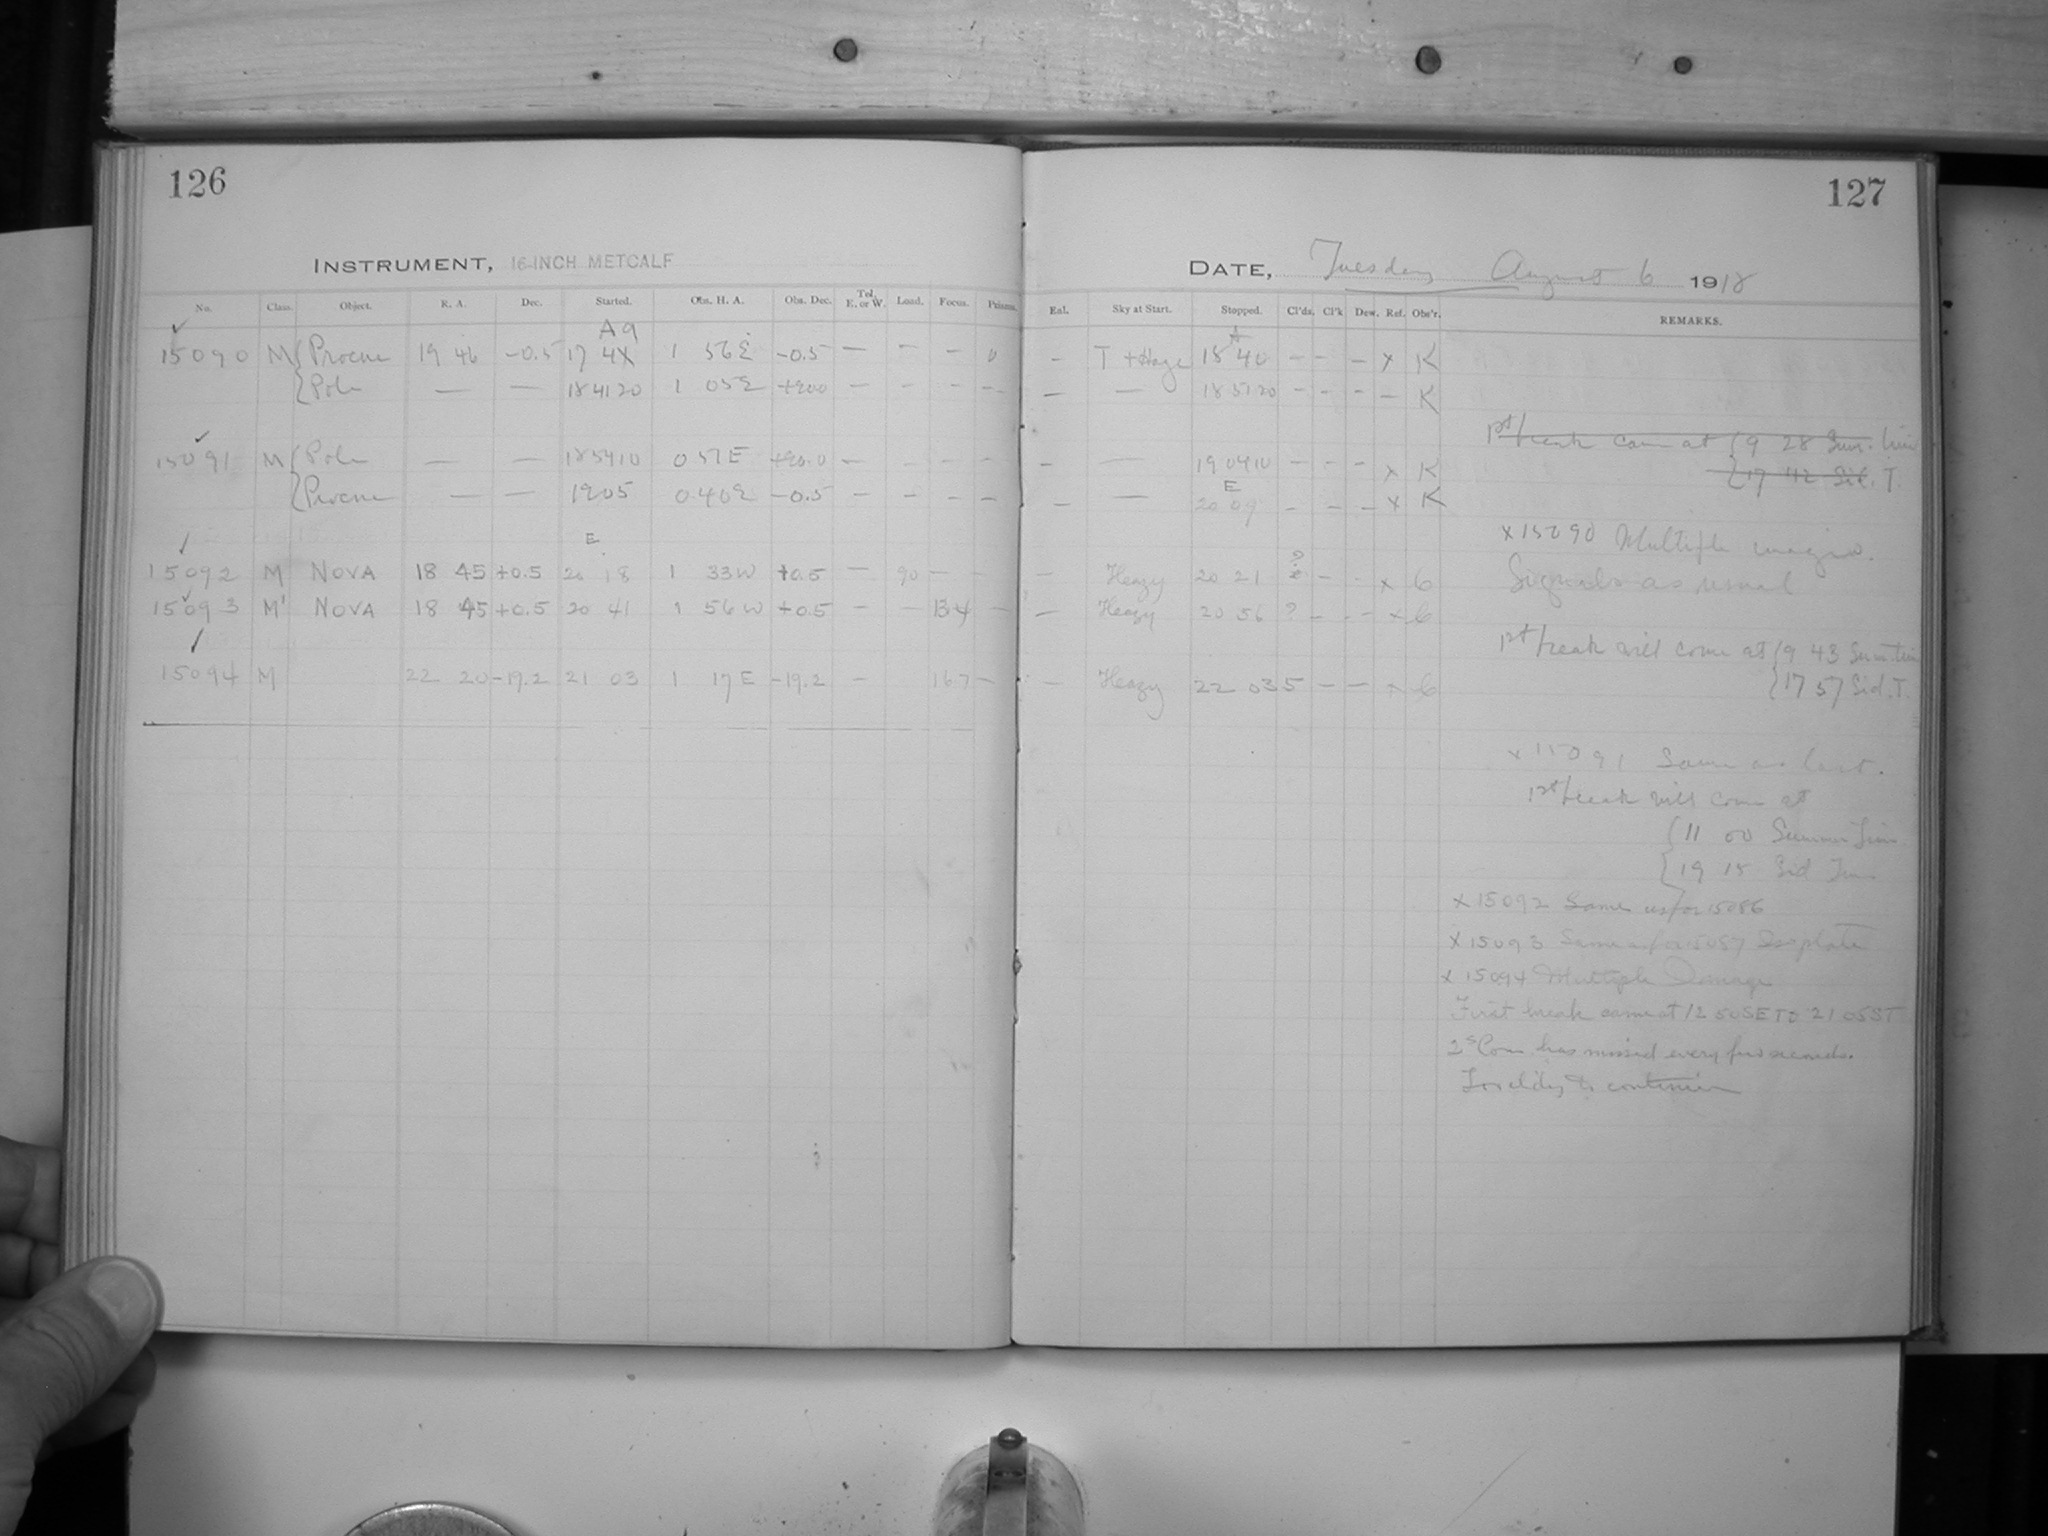 126
127
INSTRUMENT, 16-INCH METCALF
DATE, Tuesday August 6 1918
No. Class. Object. R. A. Dec. Started. Obs. H. A. Obs. Dec. Tel. E. or W. Load. Focus. Prisms.
Eal. Sky at Start. Stopped. Cl'ds. Cl'k Dew. Ref. Obs'r. REMARKS.
15090 M Procne 19 46 -0.5 17 4 1 56 E -0.5 — — — 0 — T + Haze 18 40 — — — x K
Pole — — 18 41 20 1 05 E +90.0 — — — — — — 18 51 20 — — — — K
1st break came at 9 28 Sum. Time
17 42 Sid. T.
15091 M Pole — — 18 54 10 0 51 E +90.0 — — — — — — 19 04 10 — — — x K
E
Procne — — 19 05 0.40 E -0.5 — — — — — — 20 09 — — — x K
x 15090 Multiple images.
E
15092 M NOVA 18 45 +0.5 20 18 1 33 W +0.5 — 90 — — — Heazy 20 21 ? — — x 6
Signals as usual
15093 M' NOVA 18 45 +0.5 20 41 1 56 W +0.5 — — 13.4 — — Heazy 20 56 ? — — x 6
1st break will come at 9 43 Sum. Time
17 57 Sid. T.
15094 M 22 20 -19.2 21 03 1 17 E -19.2 — 16.7 — — Heazy 22 03 5 — — x 6
x 15091 Same as last.
1st break will come at
11 00 Summer Time
19 15 Sid Time
x 15092 Same as for 15086
x 15093 Same as for Isoplate
x 15094 Multiple
First break came at 12 50 SET 21 05 ST
2s Com. has missed every few seconds.
to continue